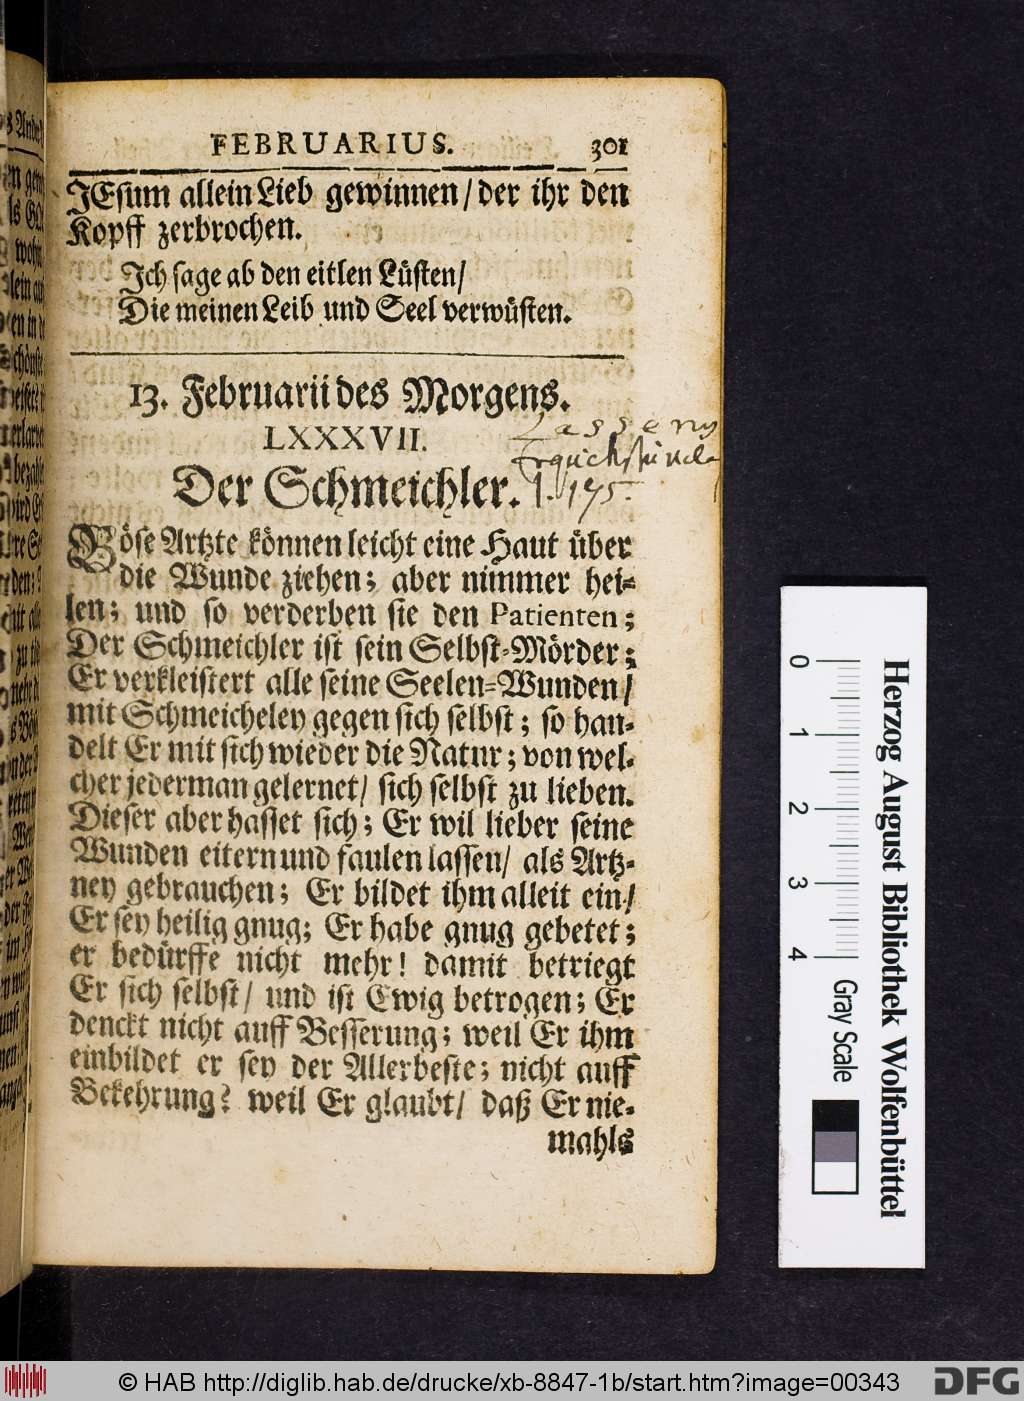 FEBRUARIUS. 301
JEsum allein Lieb gewinnen / der ihr den
Kopff zerbrochen.
Ich sage ab den eitlen Lüsten /
Die meinen Leib und Seel verwüsten.
13. Februarii des Morgens.
LXXXVII.
Der Schmeichler.
Lassenij
Erquickstunde
p. 175.
Böse Artzte können leicht eine Haut über
die Wunde ziehen; aber nimmer hei-
len; und so verderben sie den Patienten;
Der Schmeichler ist sein Selbst-Mörder;
Er verkleistert alle seine Seelen-Wunden /
mit Schmeicheley gegen sich selbst; so han-
delt Er mit sich wieder die Natur; von wel-
cher jederman gelernet / sich selbst zu lieben.
Dieser aber hasset sich; Er wil lieber seine
Wunden eitern und faulen lassen / als Artz-
ney gebrauchen; Er bildet ihm alleit ein /
Er sey heilig gnug; Er habe gnug gebetet;
er bedürffe nicht mehr! damit betriegt
Er sich selbst / und ist Ewig betrogen; Er
denckt nicht auff Besserung; weil Er ihm
einbildet er sey der Allerbeste; nicht auff
Bekehrung? weil Er glaubt / daß Er nie-
mahls
0 1 2 3 4
Gray Scale
Herzog August Bibliothek Wolfenbüttel
© HAB http://diglib.hab.de/drucke/xb-8847-1b/start.htm?image=00343
DFG